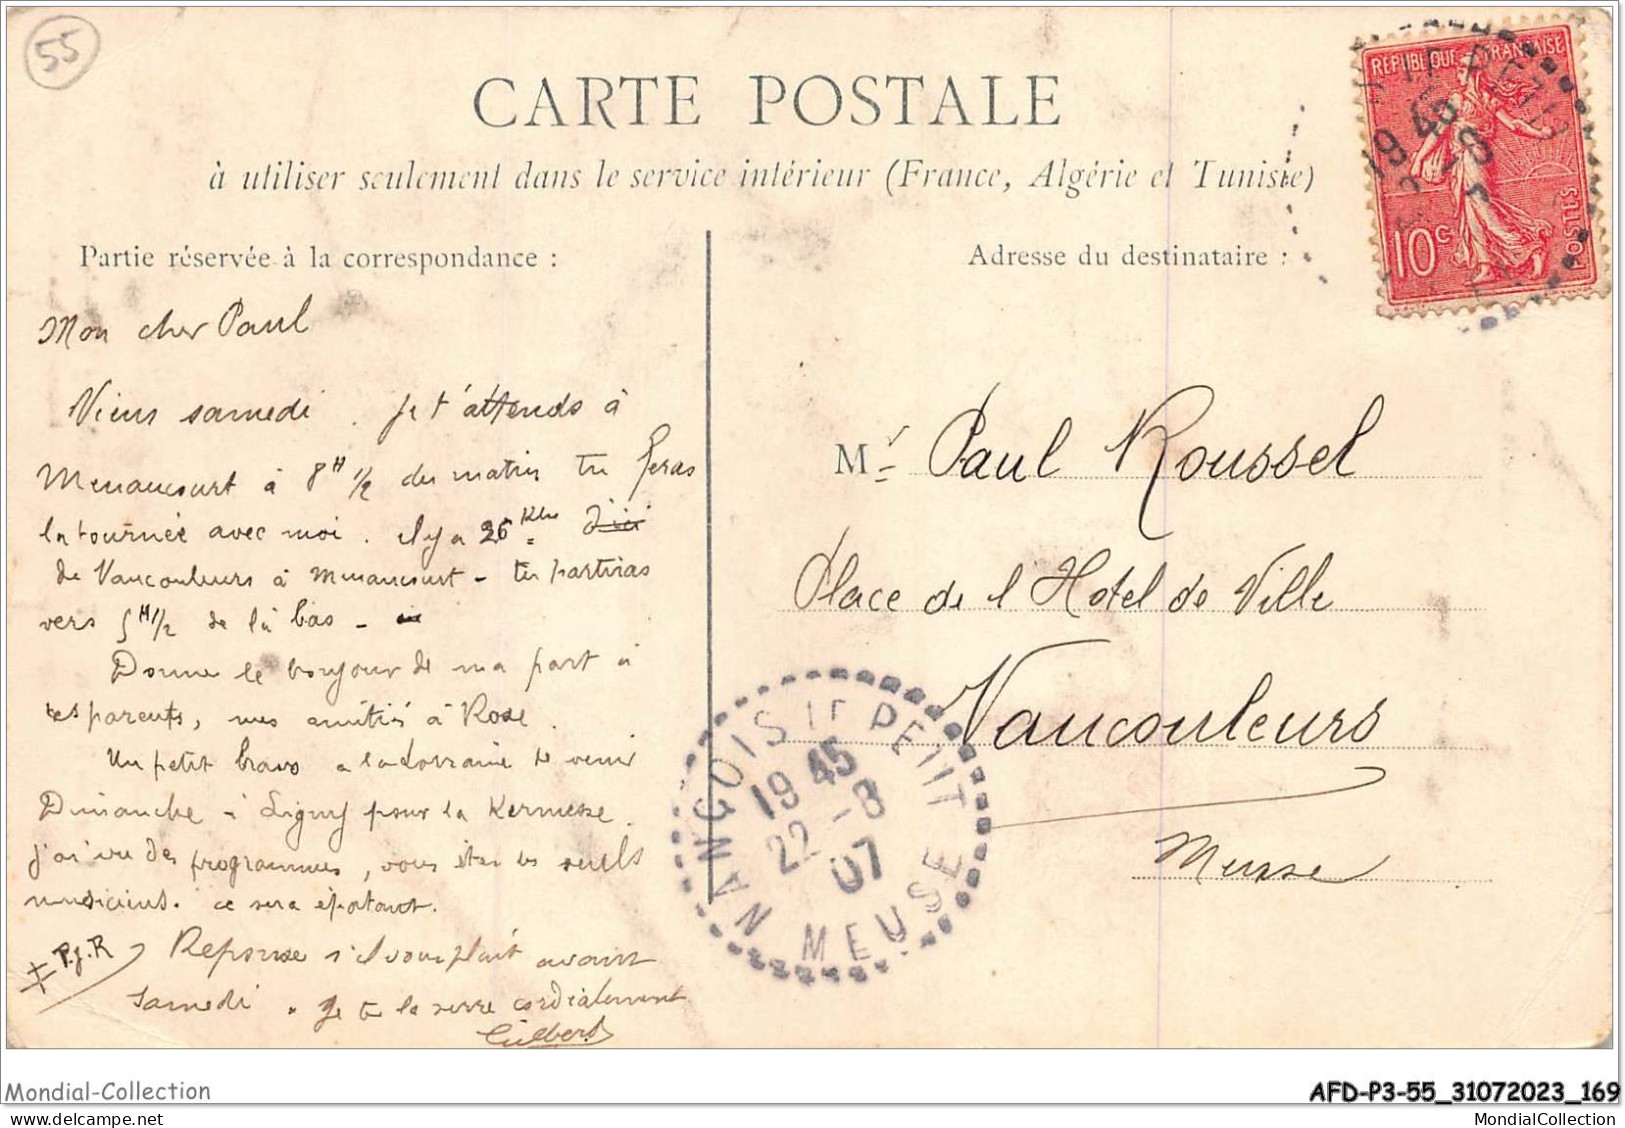 55
CARTE POSTALE
à utiliser seulement dans le service intérieur (France, Algérie et Tunisie)
Partie réservée à la correspondance :
Adresse du destinataire :
REPUBLIQUE FRANÇAISE
10c
POSTES
19 45
Mon cher Paul
Viens samedi. Je t'attends à
Menaucourt à 8H 1/2 du matin tu feras
la tournée avec moi. il y a 26 Klm d'ici
de Vaucouleurs à Menaucourt - tu partiras
vers 5H1/2 de là bas -
Donne le bonjour de ma part à
tes parents, mes amitiés à Rose.
Un petit bravo a la Lorraine de venir
Dimanche à Ligny pour la Kermesse.
j'ai vu des programmes, vous êtes les seuls
musiciens. ce sera épatant.
P.J.R Reponse s'il vous plait avant
samedi. Je te la serre cordialement
Gilbert
Mr Paul Roussel
Place de l'Hotel de Ville
Vaucouleurs
Meuse
NANGOIS LE PETIT
19 45
22 -8
07
MEUSE
Mondial-Collection
AFD-P3-55_31072023_169
MondialCollection